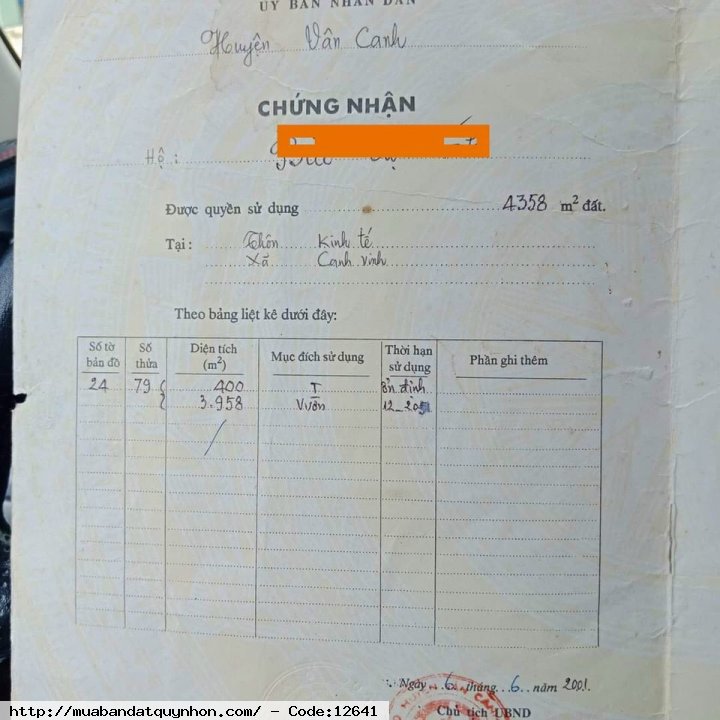 ỦY BAN NHÂN DÂN
Huyện Vân Canh
CHỨNG NHẬN
Hộ:
Được quyền sử dụng 4358 m² đất.
Tại: Thôn Kinh tế
Xã Canh vinh
Theo bảng liệt kê dưới đây:
Số tờ bản đồ Số thửa Diện tích (m²) Mục đích sử dụng Thời hạn sử dụng Phần ghi thêm
24 79 400 T ổn định
3.958 Vườn 12_20
Ngày 6 tháng 6 năm 2001.
Chủ tịch UBND
http://muabandatquynhon.com/ - Code:12641